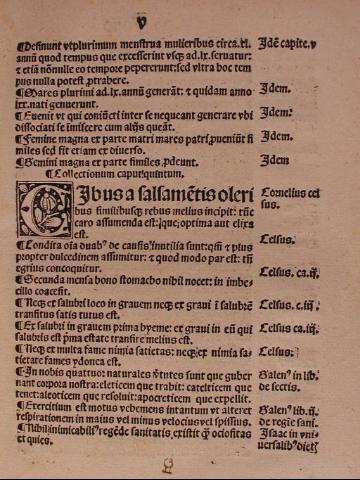 v
¶Desinunt vtplurimum menstrua mulieribus circa.xl. Idē capite.v
annū quod tempus que excesserint vsqȝ ad.lx.seruatur:
et etiā nōnulle eo tempore pepererunt:sed vltra hoc tem
pus nulla potest ,ptrahere.
¶Mares plurimi ad.lx.annū generāt: et quidam anno Idem.
lxx.nati genuerunt.
¶Euenit vt qui coniūcti inter se nequeant generare vbi Idem:
dissociati se imiscere cum alijs queāt.
¶Femine magna ex parte matri mares patri,pueniūt si Idem.
miles sed fit etiam ex diuerso.
¶Gemini magna ex parte similes ,pdeunt. Idem
¶Collectionum caput quintum.
CIbus a salsamētis oleri Cornelius cel
bus similibusqȝ rebus melius incipit: tūc sus
caro assumenda est:que optima aut elixa
est.
¶Condita oīa duabꝰ de causis inutilia sunt:qm̄ et plus Celsus.
propter dulcedinem assumitur: et quodmodo par est: tn̄
egrius concoquitur.
¶Secunda mensa bono stomacho nihil nocet: in imbe- Celsus. ca.ij.
cillo coacescit.
¶Neqȝ ex salubri loco in grauem neqȝ ex ī salubrē Celsus. c.iij.
transitus satis tutus est.
¶Ex salubri in grauem prima hyeme: et graui in eū qui Celsus ca.iij.
salubris est p̄ma estate transire melius est.
¶Neqȝ ex multa fame nimia satietas: neqȝ ex nimia sa- Celsus:
tietate fames ydonea est.
¶In nobis quattuor naturales v̄tutes sunt que guber Galenꝰ in lib.
nant corpora nostra: eleticem que trabit: catelticem que de sectis.
tenet:aleoticem que resoluit:apocreticem que expellit.
¶Exercitium est motus vehemens intantum vt alteret Galenꝰ lib.ij.
respirationem in maius vel minus velocius vel spissius. de regīe sani.
¶Nihil inimicabilꝰ regēde sanitatis existit qȝ ociositas Isaac in vni-
et quies. uersalibꝰ dietꝭ